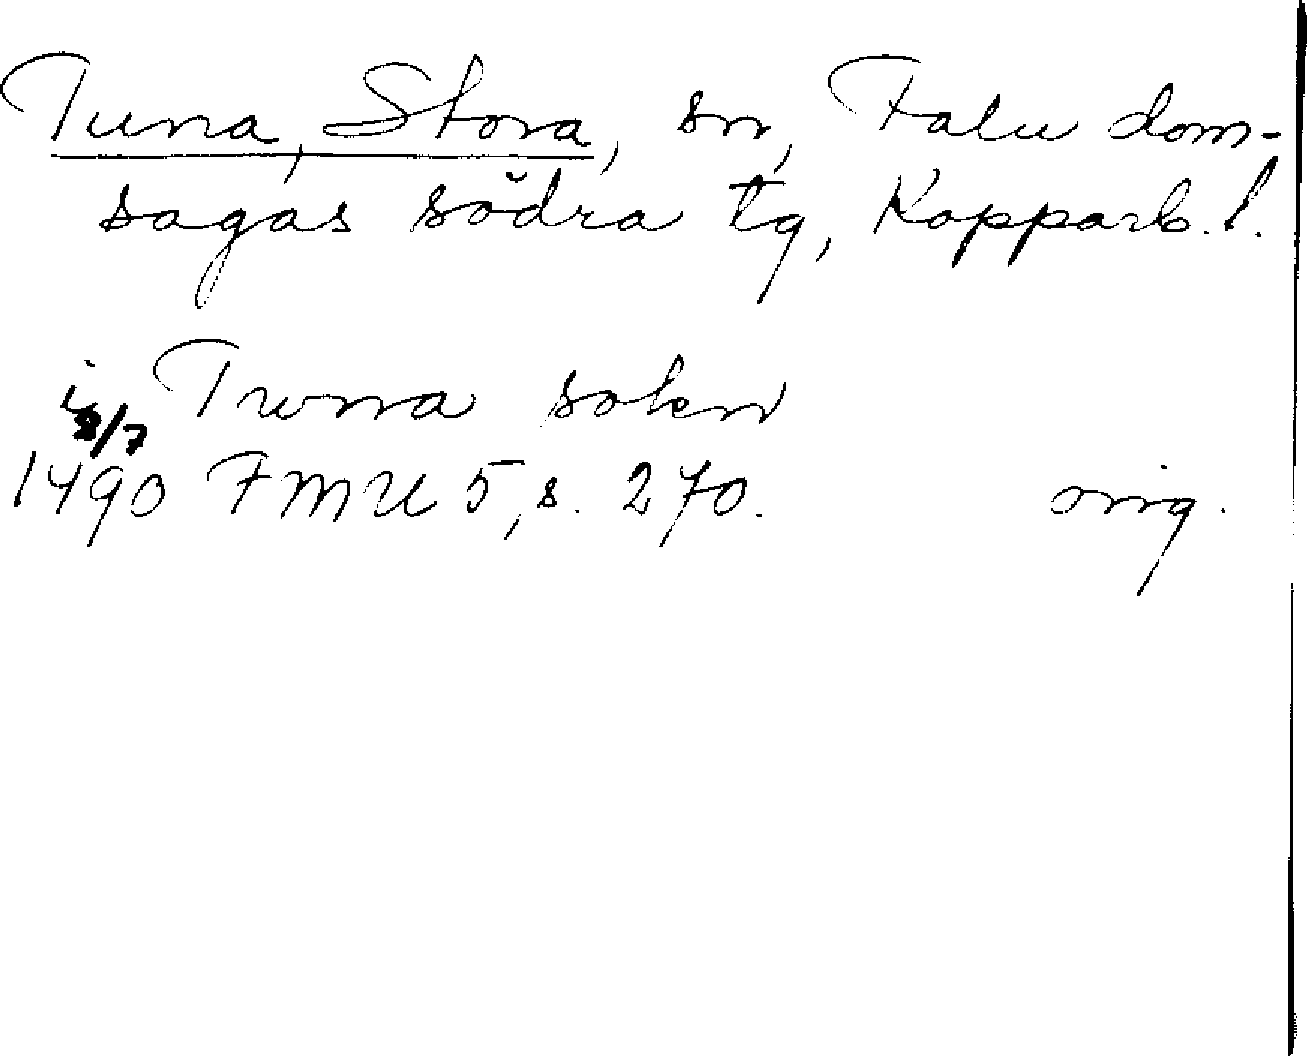 Tuna, Stora, sn, Falu dom-
sagas södra tg, Kopparb. l.
i Twna sokn
8/7
1490 FMU 5, s. 270. orig.